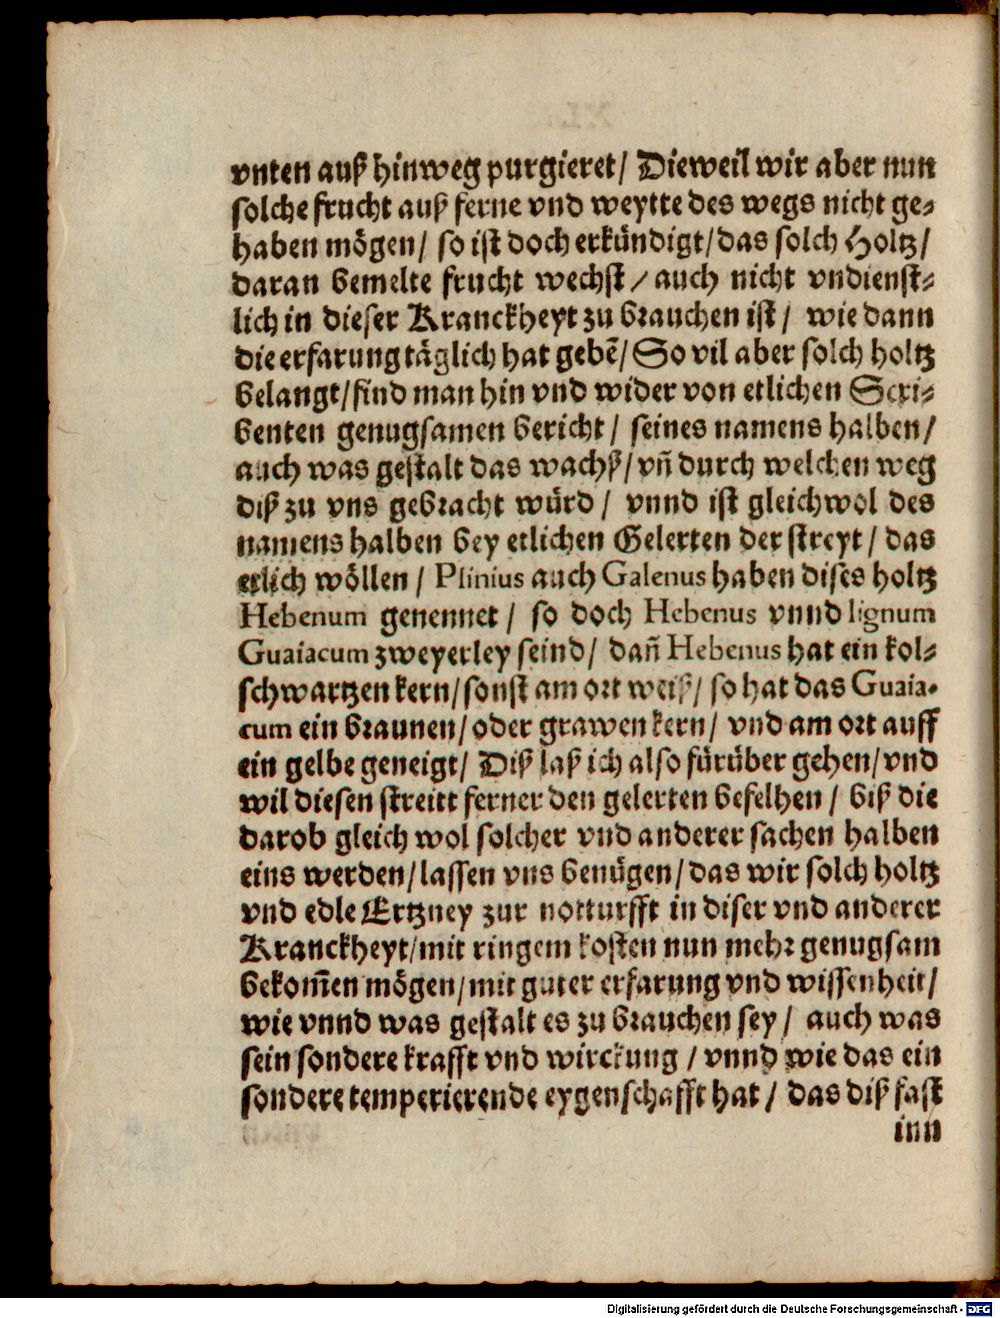 vnten auß hinweg purgieret/ Dieweil wir aber nun
solche frucht auß ferne vnd weytte des wegs nicht ge⸗
haben mögen/ so ist doch erkündigt/das solch Holtz/
daran bemelte frucht wechst/ auch nicht vndienst⸗
lich in dieser Kranckheyt zu brauchen ist/ wie dann
die erfarung täglich hat gebē/ So vil aber solch holtz
belangt/find man hin vnd wider von etlichen Scri⸗
benten genugsamen bericht/ seines namens halben/
auch was gestalt das wachß/ vñ durch welchen weg
diß zu vns gebracht würd/ vnnd ist gleichwol des
namens halben bey etlichen Gelerten der streyt/ das
etlich wöllen/ Plinius auch Galenus haben dises holtz
Hebenum genennet/ so doch Hebenus vnnd lignum
Guaiacum zweyerley seind/ dañ Hebenus hat ein kol⸗
schwartzen kern/sonst am ort weiß/ so hat das Guaia⸗
cum ein braunen/oder grawen kern/ vnd am ort auff
ein gelbe geneigt/ Diß laß ich also fürüber gehen/vnd
wil diesen streitt ferner den gelerten befelhen/ biß die
darob gleich wol solcher vnd anderer sachen halben
eins werden/lassen vns benügen/das wir solch holtz
vnd edle Ertzney zur notturfft in diser vnd anderer
Kranckheyt/mit ringem kosten nun mehr genugsam
bekom̄en mögen/mit guter erfarung vnd wissenheit/
wie vnnd was gestalt es zu brauchen sey/ auch was
sein sondere krafft vnd wirckung/ vnnd wie das ein
sondere temperierende eygenschafft hat/ das diß fast
inn
Digitalisierung gefördert durch die Deutsche Forschungsgemeinschaft - DFG